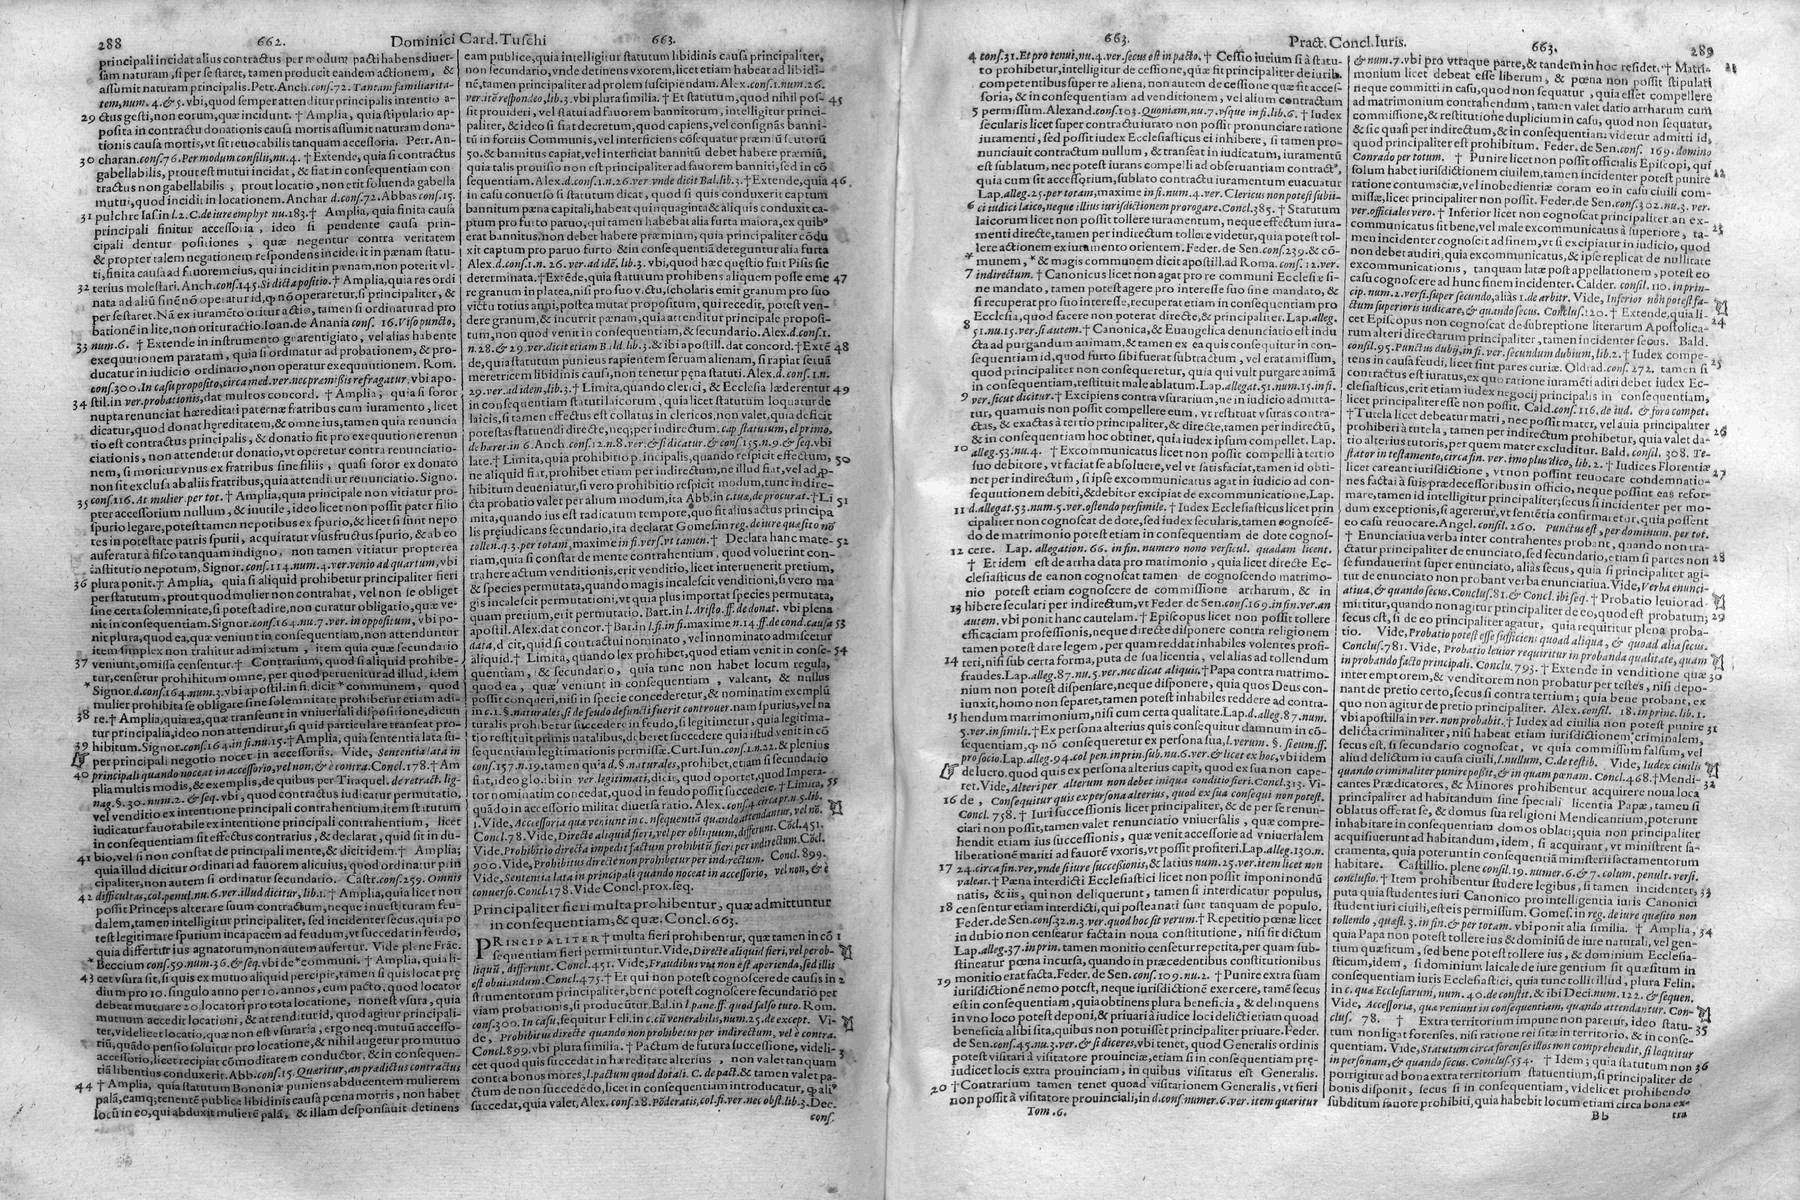 288 662. Dominici Card. Tuschi 663.
principali incidat alius contractus per modum pacti habens diuer-
sam naturam, si per se staret, tamen producit eandem actionem, &
assumit naturam principalis. Petr. Anch. cons. 72. Tantam familiarita-
tem, num. 4. & 5. vbi, quod semper attenditur principalis intentio a-
29 ctus gesti, non eorum, quæ incidunt. † Amplia, quia stipulatio ap-
posita in contractu donationis causa mortis assumit naturam dona-
tionis causa mortis, vt sit reuocabilis tanquam accessoria. Petr. An-
30 charan. cons. 76. Per modum consilii, nu. 4. † Extende, quia si contractus
gabellabilis, prout est mutui incidat, & fiat in consequentiam con-
tractus non gabellabilis, prout locatio, non erit soluenda gabella
mutui, quod incidit in locationem. Anchar d. cons. 72. Abbas cons. 15.
31 pulchre Ias. in l. 2. C. de iure emphyt nu. 183. † Amplia, quia finita causa
principali finitur accessoria, ideo si pendente causa prin-
cipali dentur positiones, quæ negentur contra veritatem
& propter talem negationem respondens inciderit in pœnam statu-
ti, finita causa ad fauorem eius, qui incidit in pœnam, non poterit vl-
32 terius molestari. Anch. cons. 145. Si dicta positio. † Amplia, quia res ordi
nata ad aliū finē nō operatur id, q̃ nō operaretur, si principaliter, &
per se staret. Nā ex iuramēto oritur actio, tamen si ordinatur ad pro
bationē in lite, non oritur actio. Ioan. de Anania cons. 16. Viso puncto,
33 num. 6. † Extende in instrumento guarentigiato, vel alias habente
exequutionem paratam, quia si ordinatur ad probationem, & pro-
ducatur in iudicio ordinario, non operatur exequutionem. Rom.
cons. 300. In casu proposito, circa med. ver. nec præmissis refragatur, vbi apo-
34 stil. in ver. probationis, dat multos concord. † Amplia, quia si soror
nupta renunciat hæreditati paternæ fratribus cum iuramento, licet
dicatur, quod donat hereditatem, & omne ius, tamen quia renuncia
tio est contractus principalis, & donatio fit pro exequutione renun
ciationis, non attenditur donatio, vt operetur contra renunciatio-
nem, si moritur vnus ex fratribus sine filiis, quasi soror ex donato
non sit exclusa ab aliis fratribus, quia attenditur renunciatio. Signo.
35 cons. 116. At mulier per tot. † Amplia, quia principale non vitiatur pro-
pter accessorium nullum, & inutile, ideo licet non possit pater filio
spurio legare, potest tamen nepotibus ex spurio, & licet si sunt nepo
tes in potestate patris spurii, acquiratur vsusfructus spurio, & ab eo
auferatur à fisco tanquam indigno, non tamen vitiatur propterea
institutio nepotum, Signor. cons. 114. num. 4. ver. venio ad quartum, vbi
36 plura ponit. † Amplia, quia si aliquid prohibetur principaliter fieri
per statutum, prout quod mulier non contrahat, vel non se obliget
sine certa solemnitate, si potestadire, non curatur obligatio, quæ ve-
nit in consequentiam. Signor. cons. 164. nu. 7. ver. in oppositum, vbi po-
nit plura, quod ea, quæ veniunt in consequentiam, non attenduntur
item simplex non trahitur ad mixtum, item quia quæ secundario
37 veniunt, omissa censentur. † Contrarium, quod si aliquid prohibe-
tur, censetur prohibitum omne, per quod peruenitur ad illud, idem
* Signor. d. cons. 164. num. 3. vbi apostil. in fi. dicit * communem, quod
mulier prohibita se obligare sine solemnitate prohibetur etiam adi-
38 re. † Amplia, quia ea, quæ transeunt in vniuersali dispositione, dicuntur
principalia, ideo non attenditur, si quid particulare transeat pro-
39 hibitum. Signor. cons. 164. in fi. nu. 15. † Amplia, quia sententia lata su-
per principali negotio nocet in accessoriis. Vide, Sententia lata in
40 principali quando noceat in accessorio, vel non, & è contra. Concl. 178. † Am
plia multis modis, & exemplis, de quibus per Tiraquel. de retract. lig-
nag. §. 30. num. 2. & seq. vbi, quod contractus iudicatur permutatio,
vel venditio ex intentione principali contrahentium, item statutum
iudicatur fauorabile ex intentione principali contrahentium, licet
in consequentiam sit effectus contrarius, & declarat, quid sit in du-
41 bio, vel si non constat de principali mente, & dicit idem. † Amplia;
quia illud dicitur ordinari ad fauorem alicuius, quod ordinatur prin
cipaliter, non autem si ordinatur secundario. Castr. cons. 259. Omnis
42 difficultas, col. penul. nu. 6. ver. illud dicitur, lib. 1. † Amplia, quia licet non
possit Princeps alterare suum contractum, neque inuestituram feu-
dalem, tamen intelligitur principaliter, sed incidenter secus. quia po
test legitimare spurium incapacem ad feudum, vt succedat in feudo,
quia differtur ius agnatorum, non autem aufertur. Vide plene Frāc.
* Beccium cons. 59. num. 36. & seq. vbi de * communi. † Amplia, quia li-
43 cet vsura sit, si quis ex mutuo aliquid percipit, tamen si quis locat præ
dium pro 10. singulo anno per 10. annos, cum pacto. quod locator
debeat mutuare 20. locatori pro tota locatione, non est vsura, quia
mutuum accedit locationi, & attenditur id, quod agitur principali-
ter, videlicet locatio, quæ non est vsuraria, ergo neq. mutuū accesso-
riū, quādo pensio soluitur pro locatione, & nihil augetur pro mutuo
accessorio, licet recipiat cōmoditatem conductor, & in consequen-
tiā libentius conduxerit. Abb. cons. 15. Quæritur, an prædictus contractus
44 † Amplia, quia statutum Bononiæ puniens abducentem mulierem
palā, eamq; tenentē publice libidinis causa pœna mortis, non habet
locū in eo, qui abduxit mulierē palā, & illam desponsauit detinens
eam publice, quia intelligitur statutum libidinis causa principaliter,
non secundario, vnde detinens vxorem, licet etiam habeat ad libidi-
nē, tamen principaliter ad prolem suscipiendam. Alex. cons. 1. num. 26.
ver. itē respondeo, lib. 3. vbi plura similia. † Et statutum, quod nihil pos- 45
sit prouideri, vel statui ad fauorem bannitorum, intelligitur princi-
paliter, & ideo si fiat decretum, quod capiens, vel consignās banni-
tū in fortiis Communis, vel interficiens cōsequatur præmiū scutorū
50. & bannitus capiat, vel interficiat bannitū debet habere præmiū,
quia talis prouisio non est principaliter ad fauorem banniti, sed in cō
sequentiam. Alex. d. cons. 1. n. 26. ver. vnde dicit Bal. lib. 3. † Extende, quia 46
in casu conuerso si statutum dicat, quod si quis conduxerit captum
bannitum pœna capitali, habeat quinquaginta & aliquis conduxit ca-
ptum pro furto paruo, qui tamen habebat alia furta maiora, ex quibus
erat bannitus, non debet habere præmium, quia principaliter cōdu
xit captum pro paruo furto & in consequentiā deteguntur alia furta
Alex. d. cons. 1. n. 26. ver. ad idē, lib. 3. vbi, quod hæc questio fuit Pisis sic
determinata. † Extēde, quia statutum prohibens aliquem posse eme 47
re granum in platea, nisi pro suo victu, scholaris emit granum pro suo
victu totius anni, postea mutat propositum, qui recedit, potest ven-
dere granum, & incurrit pœnam, quia attenditur principale proposi-
tum, non quod venit in consequentiam, & secundario. Alex. d. cons. 1.
n. 28. & 29. ver. dicit etiam Bald. lib. 3. & ibi apostill. dat concord. † Extē 48
de, quia statutum puniens rapientem seruam alienam, si rapiat seruā
meretricem libidinis causa, non tenetur pœna statuti. Alex. d. cons. 1. n.
29. ver. ad idem, lib. 3. † Limita, quando clerici, & Ecclesia læderentur 49
in consequentiam statuti laicorum, quia licet statutum loquatur de
laicis, si tamen effectus est collatus in clericos, non valet, quia deficit
potestas statuendi directe, neq; per indirectum. cap. statutum, el primo,
de haret. in 6. Anch. cons. 12. n. 8. ver. & si dicatur. & cons. 155. n. 9. & seq. vbi
late. † Limita, quia prohibitio principalis, quando respicit effectum, 50
ne aliquid fiat, prohibet etiam per indirectum, ne illud fiat, vel ad
hibitum deueniatur, si vero prohibitio respicit modum, tunc indire-
cta probatio valet per alium modum, ita Abb. in c. tuæ, de procurat. † Li 51
mita, quando ius est radicatum tempore, quo fit alius actus principa
lis præiudicans secundario, ita declarat Gomes. in reg. de iure quæsito nō
tollen. q. 3. per totam, maxime in fi. vers. vt tamen. † Declara hanc mate- 52
riam, quia si constat de mente contrahentium, quod voluerint con-
trahere actum venditionis, erit venditio, licet interuenerit pretium,
& species permutata, quando magis incalescit venditioni, si vero ma
gis incalescit permutationi, vt quia plus importat species permutata,
quam pretium, erit permutatio. Bart. in l. Aristo. ff. de donat. vbi plena
apostil. Alex. dat concor. † Bar. in l. si. in fi. maxime n. 14. ff. de cond. causa 53
data, dicit, quid si contractui nominato, vel innominato admiscetur
aliquid. † Limita, quando lex prohibet, quod etiam venit in conse- 54
quentiam, & secundario, quia tunc non habet locum regula,
quod ea, quæ veniunt in consequentiam, valeant, & nullus
possit conqueri, nisi in specie concederetur, & nominatim exemplū
in c. 1. §. naturales, si de feudo defuncti fuerit controuer. nam spurius, vel na
turalis prohibetur succedere in feudo, si legitimetur, quia legitima-
tio restituit primis natalibus, deberet succedere quia istud venit in cō
sequentiam legitimationis permissæ. Curt. Iun. cons. 1. n. 22. & plenius
cons. 157. n. 19. tamen quia d. §. naturales, prohibet, etiam si secundario
fiat, ideo glo. ibi in ver. legitimati, dicit, quod oportet, quod Impera-
tor nominatim concedat, quod in feudo possit succedere. † Limita, 55
quādo in accessorio militat diuersa ratio. Alex. cons. 4. circa pr. n. 5. lib.
1. Vide, Accessoria quæ veniunt in consequentiā quando attendantur, vel nō.
Concl. 78. Vide, Directe aliquid fieri, vel per obliquum, differunt. Cōcl. 451.
Vide. Prohibitio directa impedit factum prohibitū fieri per indirectum. Cōcl.
900. Vide, Prohibitus directe non prohibetur per indirectum. Concl. 899.
Vide, Sententia lata in principali quando noceat in accessorio, vel non, & è
conuerso. Concl. 178. Vide Concl. prox. seq.
Principaliter fieri multa prohibentur, quæ admittuntur
in consequentiam, & quæ. Concl. 663.
PRINCIPALITER † multa fieri prohibentur, quæ tamen in cō 1
sequentiam fieri permittuntur. Vide, Directe aliquid fieri, vel per ob-
liquū, differunt. Concl. 451. Vide, Fraudibus via non est aperienda, sed illis
est obuiandum. Concl. 475. † Et qui non potest cognoscere de causis in 2
strumentorum principaliter, bene potest cognoscere secundario per
viam probationis, si producūtur. Bal. in l. pane. ff. quod falso tuto. Rom.
cons. 300. In casu, sequitur Feli. in c. cū venerabilis, num. 25. de except. Vi-
de, Prohibitus directe quando non prohibetur per indirectum, vel è contra.
Concl. 899. vbi plura similia. † Pactum de futura successione, videli- 3
cet quod quis succedat in hæreditate alterius, non valet tanquam
contra bonos mores, l. pactum quod dotali. C. de pact. & tamen valet pa-
ctum de non succedēdo, licet in consequentiam introducatur, q̃ alij
succedat, quia valet, Alex. cons. 28. Pōderatis, col. fi. ver. nec obst. lib. 3. Dec.
cons.
663. Pract. Concl. Iuris. 663. 289
4 cons. 31. Et pro tenui, nu. 4. ver. secus est in pacto. † Cessio iurium si à statu-
to prohibetur, intelligitur de cessione, quæ fit principaliter de iurib.
competentibus super re aliena, non autem de cessione quæ fit acces-
soria, & in consequentiam ad venditionem, vel alium contractum
5 permissum. Alexand. cons. 103. Quoniam, nu. 7. vsque in fi. lib. 6. † Iudex
secularis licet super contractu iurato non possit pronunciare ratione
iuramenti, sed possit iudex Ecclesiasticus ei inhibere, si tamen pro-
nunciauit contractum nullum, & transeat in iudicatum, iuramentū
est sublatum, nec potest iurans compelli ad obseruantiam contract',
quia cum sit accessorium, sublato contractu iuramentum euacuatur
Lap. alleg. 25. per totam, maxime in fi. num. 4. ver. Clericus non potest subii-
6 ci iudici laico, neque illius iurisdictionem prorogare. Concl. 385. † Statutum
laicorum licet non possit tollere iuramentum, neque effectum iura-
menti directe, tamen per indirectum tollere videtur, quia potest tol-
lere actionem ex iuramento orientem. Feder. de Sen. cons. 239. & cō-
* munem, * & magis communem dicit apostill. ad Roma. cons. 12. ver.
7 indirectum. † Canonicus licet non agat pro re communi Ecclesiæ si-
ne mandato, tamen potest agere pro interesse suo sine mandato, &
si recuperat pro suo interesse, recuperat etiam in consequentiam pro
Ecclesia, quod facere non poterat directe, & principaliter. Lap. alleg.
8 51. nu. 15. ver. si autem. † Canonica, & Euangelica denunciatio est indu
cta ad purgandum animam, & tamen ex ea quis consequitur in con-
sequentiam id, quod furto sibi fuerat subtractum, vel erat amissum,
quod principaliter non consequeretur, quia qui vult purgare animā
in consequentiam, restituit male ablatum. Lap. allegat. 51. num. 15. in fi.
9 ver. sicut dicitur. † Excipiens contra vsurarium, ne in iudicio admitta-
tur, quamuis non possit compellere eum, vt restituat vsuras contra-
ctas, & exactas à tertio principaliter, & directe, tamen per indirectū,
& in consequentiam hoc obtinet, quia iudex ipsum compellet. Lap.
10 alleg. 53. nu. 4. † Excommunicatus licet non possit compelli à tertio
suo debitore, vt faciat se absoluere, vel vt satisfaciat, tamen id obti-
net per indirectum, si ipse excommunicatus agat in iudicio ad con-
sequutionem debiti, & debitor excipiat de excommunicatione. Lap.
11 d. allegat. 53. num. 5. ver. ostendo persimile. † Iudex Ecclesiasticus licet prin
cipaliter non cognoscat de dote, sed iudex secularis, tamen cognoscē-
do de matrimonio potest etiam in consequentiam de dote cognos-
12 cere. Lap. allegation. 66. in fin. numero nono versicul. quadam licent.
† Et idem est de arrha data pro matrimonio, quia licet directe Ec-
clesiasticus de ea non cognoscat tamen de cognoscendo matrimo-
nio potest etiam cognoscere de commissione arrharum, & in
13 hibere seculari per indirectum, vt Feder. de Sen. cons. 169. in fin. ver. an
autem. vbi ponit hanc cautelam. † Episcopus licet non possit tollere
efficaciam professionis, neque directe disponere contra religionem
tamen potest dare legem, per quam reddat inhabiles volentes profi-
14 teri, nisi sub certa forma, puta de sua licentia, vel alias ad tollendum
fraudes. Lap. alleg. 87. nu. 5. ver. nec dicat aliquis. † Papa contra matrimo-
nium non potest dispensare, neque disponere, quia quos Deus con-
iunxit, homo non separet, tamen potest inhabiles reddere ad contra-
15 hendum matrimonium, nisi cum certa qualitate. Lap. d. alleg. 87. num.
5. ver. in simili. † Ex persona alterius quis consequitur damnum in cō-
sequentiam, q̃ nō consequeretur ex persona sua, l. verum. §. si eum. ff.
pro socio. Lap. alleg. 94. col. pen. in prin. sub. nu. 6. ver. & licet ex hoc, vbi idem
de lucro, quod quis ex persona alterius capit, quod ex sua non cape-
ret. Vide, Alteri per alterum non debet iniqua conditio fieri. Concl. 313. Vi-
16 de, Consequitur quis ex persona alterius, quod ex sua consequi non potest.
Concl. 758. † Iuri successionis licet principaliter, & de per se renun-
ciari non possit, tamen valet renunciatio vniuersalis, quæ compre-
hendit etiam ius successionis, quæ venit accessorie ad vniuersalem
liberationē mariti ad fauorē vxoris, vt possit profiteri. Lap. alleg. 130. n.
17 24. circa fin. ver, vnde si iure successionis, & latius num. 25. ver. item licet non
valeat. † Pœna interdicti Ecclesiastici licet non possit imponi nondū
natis, & iis, qui non deliquerunt, tamen si interdicatur populus,
18 censentur etiam interdicti, qui postea nati sunt tanquam de populo.
Feder. de Sen. cons. 32. n. 3. ver. quod hoc sit verum. † Repetitio pœnæ licet
in dubio non censeatur facta in noua constitutione, nisi sit dictum
Lap. alleg. 37. in prin. tamen monitio censetur repetita, per quam sub-
stineatur pœna incursa, quando in præcedentibus constitutionibus
19 monitio erat facta. Feder. de Sen. cons. 109. nu. 2. † Punire extra suam
iurisdictionē nemo potest, neque iurisdictionē exercere, tamē secus
est in consequentiam, quia obtinens plura beneficia, & delinquens
in vno loco potest deponi, & priuari à iudice loci delicti etiam quoad
beneficia alibi sita, quibus non potuisset principaliter priuare. Feder.
de Sen. cons. 45. nu. 3. ver. & si diceres, vbi tenet, quod Generalis ordinis
potest visitari à visitatore prouinciæ, etiam si in consequentiam præ-
iudicet locis extra prouinciam, in quibus visitatus est Generalis.
20 † Contrarium tamen tenet quoad visitationem Generalis, vt fieri
non possit à visitatore prouinciali, in d. cons. numer. 6. ver. item quæritur
Tom. 6.
& num. 7. vbi pro vtraque parte, & tandem in hoc residet. † Matri- 21
monium licet debeat esse liberum, & pœna non possit stipulari
neque committi in casu, quod non sequatur, quia esset compellere
ad matrimonium contrahendum, tamen valet datio arrharum cum
commissione, & restitutione duplicium in casu, quod non sequatur,
& sic quasi per indirectum, & in consequentiam videtur admitti id,
quod principaliter fieri non possit. Feder. de Sen. cons. 169. domino
Conrado per totum. † Punire licet non possit officialis Episcopi, qui 22
solum habet iurisdictionem ciuilem, tamen incidenter potest punire
ratione contumaciæ, vel inobedientiæ coram eo in casu ciuili com-
missæ, licet principaliter non possit. Feder. de Sen. cons. 302. nu. 3. ver.
ver. officialis vero. † Inferior licet non cognoscat principaliter an ex- 23
communicatus sit bene, vel male excommunicatus à superiore, ta-
men incidenter cognoscit ad finem, vt si excipiatur in iudicio, quod
non debet audiri, quia excommunicatus, & ipse replicat de nullitate
excommunicationis, tanquam latæ post appellationem, potest eo
casu cognoscere ad hunc finem incidenter. Calder. consil. 110. in prin-
cip. num. 2. versi. super secundo, aliàs 1. de arbitr. Vide, Inferior non potest fa-
ctum superioris iudicare, & quando secus. Conclus. 120. † Extende, quia li- 24
cet Episcopus non cognoscat de subreptione literarum Apostolica-
rum alteri directarum principaliter, tamen incidenter secus. Bald.
consil. 95. Punctus dubij, in fi. ver. secundum dubium, lib. 2. † Iudex compe- 25
tens in causa feudi, licet sint pares curiæ. Oldrad. cons. 272. tamen si
contractus est iuratus, ex quo ratione iuramēti adiri debet iudex Ec-
clesiasticus, erit etiam iudex negocij principalis in consequentiam,
licet principaliter esse non possit. Cald. cons. 116. de iud. & foro compet.
† Tutela licet debeatur matri, nec possit mater, vel auia principaliter 26
prohiberi à tutela, tamen per indirectum prohibetur, quia valet da-
tio alterius tutoris, per quem mater excluditur. Bald. consil. 308. Te-
stator in testamento, circa fin. ver. imo plus dico, lib. 2. † Iudices Florentiæ 27
licet careant iurisdictione, vt non possint reuocare condemnatio-
nes factas à suis prædecessoribus in officio, neque possint eas refor-
mare, tamen id intelligitur principaliter, secus si incidenter per mo-
dum exceptionis, si ageretur, vt sententia confirmaretur, quia possent
eo casu reuocare. Angel. consil. 260. Punctus est, per dominum. per tot.
† Enunciatiua verba inter contrahentes probant, quando non tra- 28
ctatur principaliter de enunciato, sed secundario, etiam si partes non
se fundauerint super enunciato, aliàs secus, quia si principaliter agi-
tur de enunciato non probant verba enunciatiua. Vide, Verba enunci-
atiua, & quando secus. Conclus. 81. & Concl. ibi seq. † Probatio leuior ad- 29
mittitur, quando non agitur principaliter de eo, quod est probatum;
secus est, si de eo principaliter agatur, quia requiritur plena proba-
tio. Vide, Probatio potest esse sufficiens quoad aliqua, & quoad alia secus.
Conclus. 781. Vide, Probatio leuior requiritur in probanda qualitate, quam
in probando facto principali. Conclu. 793. † Extende in venditione quæ 30
inter emptorem, & venditorem non probatur per testes, nisi depo-
nant de pretio certo, secus si contra tertium; quia bene probant, ex
quo non agitur de pretio principaliter. Alex. consil. 18. in princ. lib. 1.
vbi apostilla in ver. non probabit. † Iudex ad ciuilia non potest punire 31
delicta criminaliter, nisi habeat etiam iurisdictionem criminalem,
secus est, si secundario cognoscat, vt quia commissum falsum, vel
aliud delictum in causa ciuili, l. nullum, C. de testib. Vide, Iudex ciuilis
quando criminaliter punire possit, & in quam pœnam. Concl. 468. † Mendi- 32
cantes Prædicatores, & Minores prohibentur acquirere noua loca
principaliter ad habitandum sine speciali licentia Papæ, tamen si
oblatus offerat se, & domus sua religioni Mendicantium, poterunt
inhabitare in consequentiam domos oblati; quia non principaliter
acquisiuerunt ad habitandum, idem, si acquirant, vt ministrent sa-
cramenta, quia poterunt in consequentiā ministerii sacramentorum
habitare. Castillio. plene consil. 19. numer. 6. & 7. colum. penult. versi.
conclusio. † Item prohibentur studere legibus, si tamen incidenter, 33
puta quia student iuri Canonico pro intelligentia iuris Canonici
student iuri ciuili, est eis permissum. Gomes. in reg. de iure quæsito non
tollendo, quæst. 3. in fin. & per totam. vbi ponit alia similia. † Amplia, 34
quia Papa non potest tollere ius & dominiū de iure naturali, vel gen-
tium quæsitum, sed bene potest tollere ius, & dominium Ecclesia-
sticum, idem, si dominium laicale de iure gentium sit quæsitum in
consequentiam iuris Ecclesiastici, quia istud tollere potest, Felin.
in c. quæ Ecclesiarum, num. 40. de constit. & ibi Deci. num. 122. & sequen.
Vide, Accessoria, quæ veniunt in consequentiam, quando attendantur. Con-
clus. 78. † Extra territorium impune non paretur, ideo statu- 35
tum non ligat forenses. nisi ratione rei sitæ in territorio, & in conse-
quentiam. Vide, Statutum circa forenses illos non comprehendit, si loquitur
in personam, & quando secus. Conclus. 554. † Idem; quia statutum non 36
porrigitur ad bona extra territorium statuentium, si principaliter de
bonis disponit, secus si in consequentiam, videlicet prohibendo
subditum fauore prohibiti, quia habebit locum etiam circa bona ex-
Bb tra